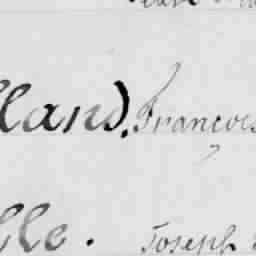 lland). François
lle. Joseph